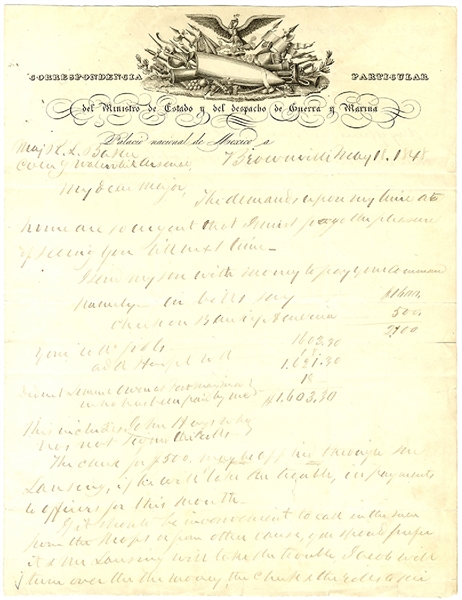 CORRESPONDENCIA PARTICULAR
del Ministro de Estado y del despacho de Guerra y Marina
Palacio nacional de Mexico a
Maj R. L. Baker
Comg Watervliet Arsenal
Brownville May 18. 1848
My Dear Major,
The demands upon my time at
home are so urgent that I must forgo the pleasure
of seeing you till next time -
I send my son with money to pay your demand
Namely - in bills say $1600.
Check on Bank of America 500.
2100
Your
add 1602.30
1.621.30
18
$1.603.30
This includes John
has not
The check for $500. may be through Mr
Lansing, if he will take the trouble, in payments
to officers for this month -
If it should be inconvenient to call in the men
from the shops or from other cause, you should prefer
it & Mr Lansing will take the trouble Jacob will
turn over the the money, the check & the rolls to him